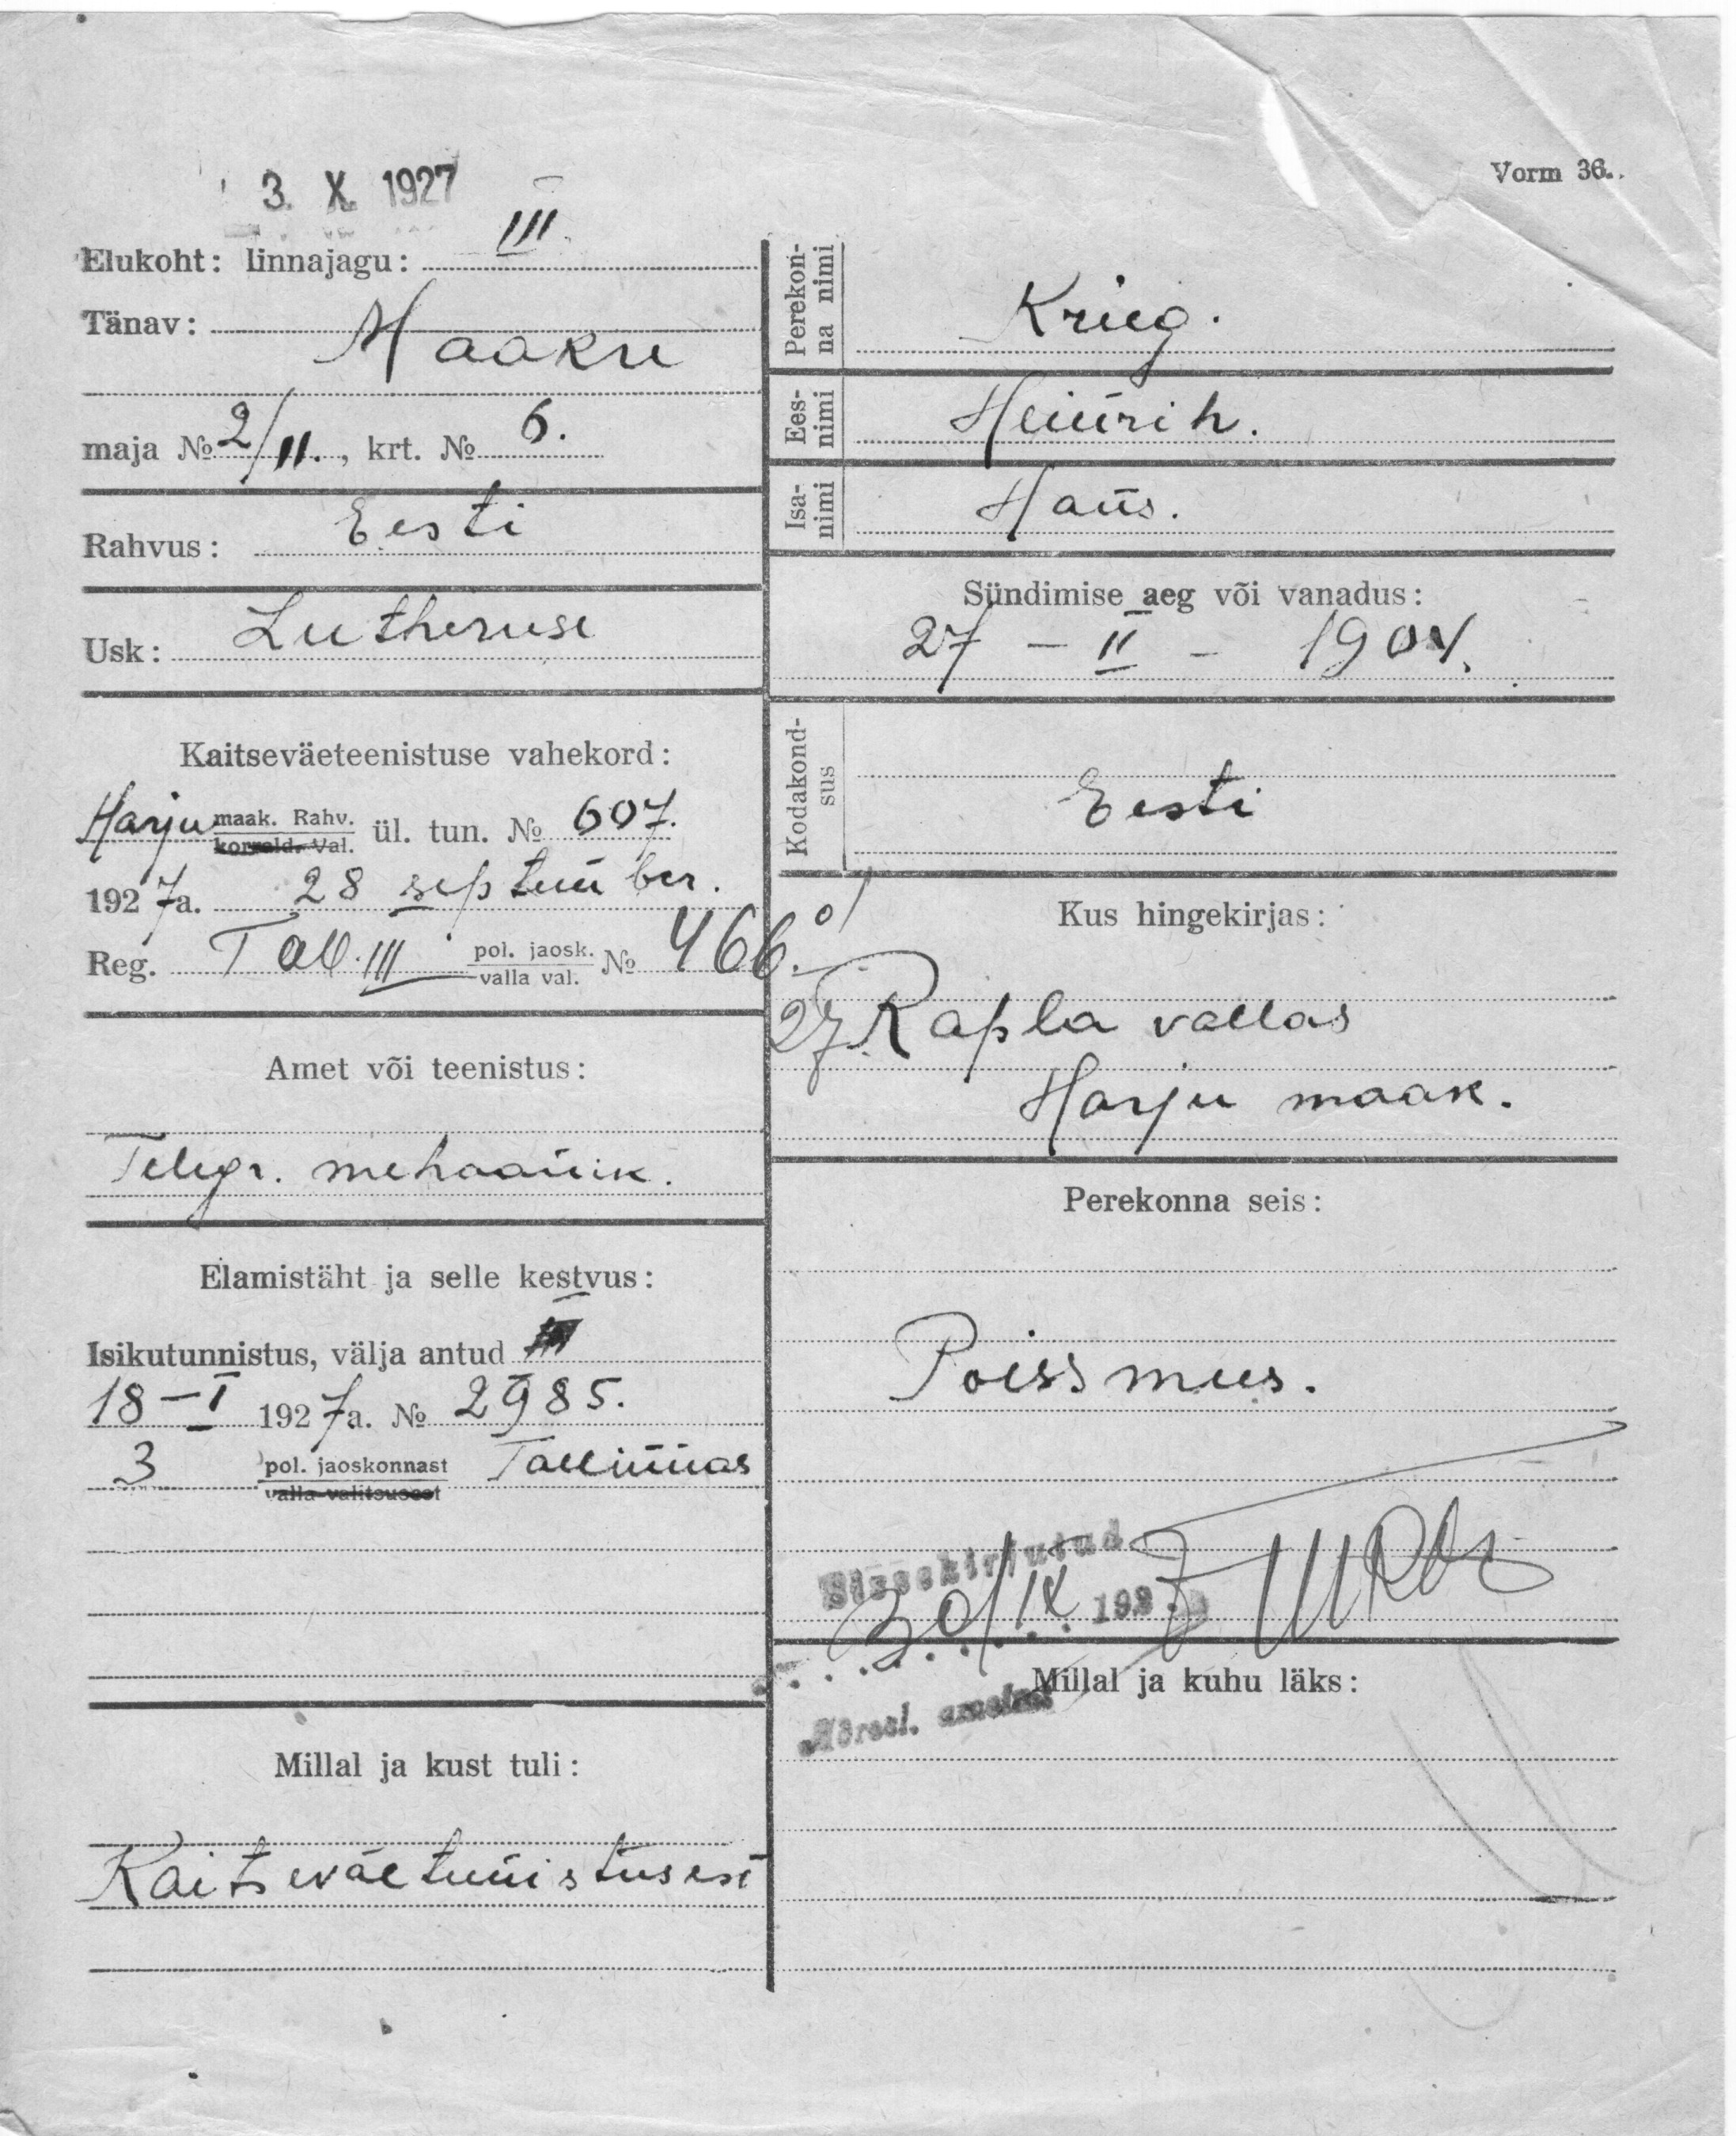 3. X. 1927
Vorm 36.
Elukoht: linnajagu: III
Tänav: Maakre
maja № 2/11., krt. № 6.
Rahvus: Eesti
Usk: Lutheruse
Kaitseväeteenistuse vahekord:
Harju maak. Rahv. korrald. Val. ül. tun. № 607.
1927 a. 28 september.
Reg. Tall. III pol. jaosk. valla val. № 466.
Amet või teenistus:
Telegr. mehaanik.
Elamistäht ja selle kestvus:
Isikutunnistus, välja antud
18 – I 1927 a. № 2985.
3 pol. jaoskonnast valla valitsusest Tallinnas
Millal ja kust tuli:
Kaitseväeteenistusest
Perekonna nimi
Krieg.
Eesnimi
Heinrih.
Isanimi
Hans.
Sündimise aeg või vanadus:
27 – II – 1904.
Kodakondsus
Eesti
Kus hingekirjas:
27 Rapla vallas
Harju maak.
Perekonna seis:
Poissmees.
Sissekirjutud
30/IX 1927
Adressl. ametnik
Millal ja kuhu läks: